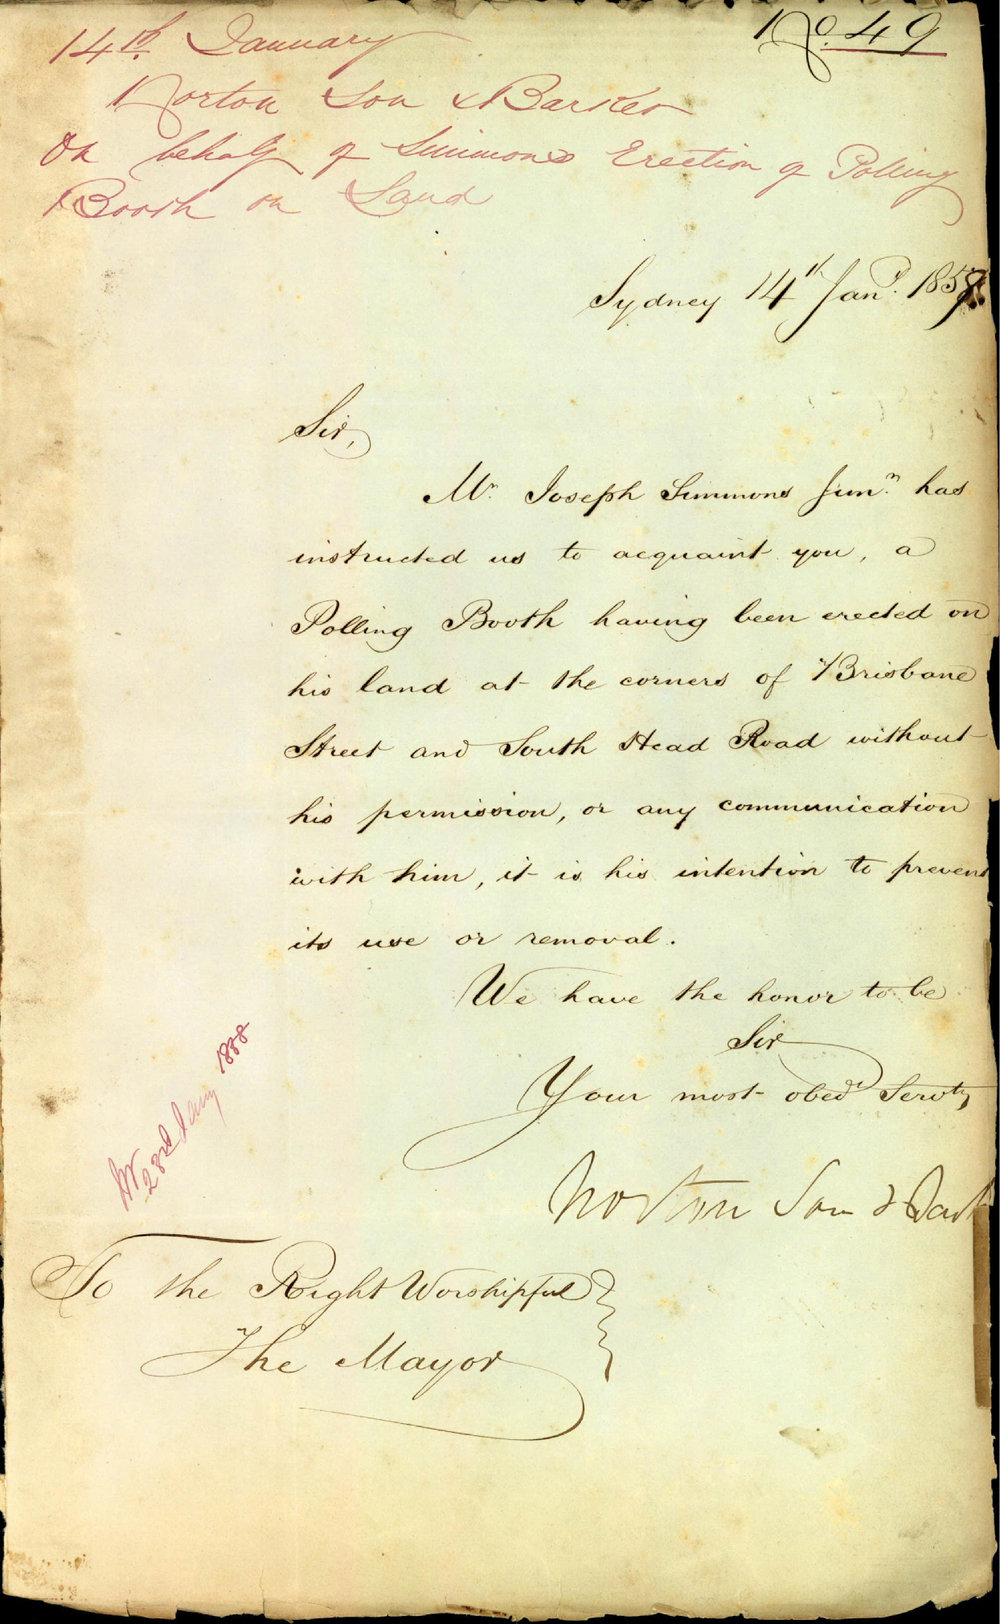 No. 49
14th January
Norton Son & Barker
On behalf of Simmons Erection of Polling
Booth on Land
Sydney 14th Jany. 1858.
Sir,
Mr. Joseph Simmons Junr. has
instructed us to acquaint you, a
Polling Booth having been erected on
his land at the corners of Brisbane
Street and South Head Road without
his permission, or any communication
with him, it is his intention to prevent
its use or removal.
We have the honor to be
Sir
Your most obedt Servts
Norton Son & Bark
23rd Jany 1858
To the Right Worshipful
The Mayor